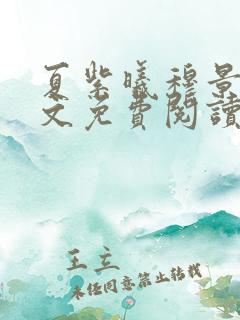 夏紫曦穆景
文免費閱讀
王立
未经同意禁止转载